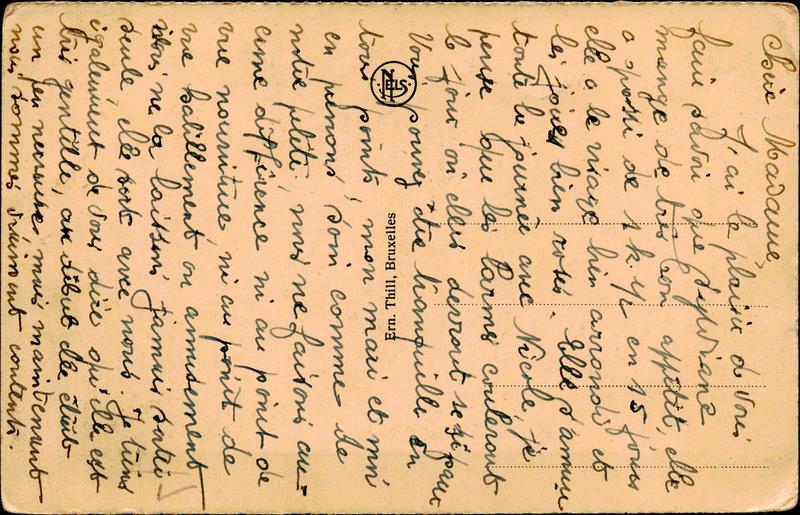 Chère Madame,
J'ai le plaisir de vous
faire savoir que Sylviane
mange de très bon appétit, elle
a grossi de 1 k 1/2 en 15 jours
elle a le visage bien arrondi et
les joues bien roses. Elle s'amuse
toute la journée avec Nicole, je
pense que les larmes couleront
le jour où elles devront se séparer
Vous pouvez être tranquille en
tous points mon mari et moi
en prenons soin comme de
notre petite, nous ne faisons au-
cune différence ni au point de
vue nourriture ni au point de
vue habillement ou amusement
nous ne la laissons jamais sortir
seule, elle sort avec nous. Je tiens
également de vous dire qu'elle est
très gentille, au début elle était
un peu nerveuse mais maintenant
nous sommes vraiment contents.
NELS
Ern. Thill, Bruxelles